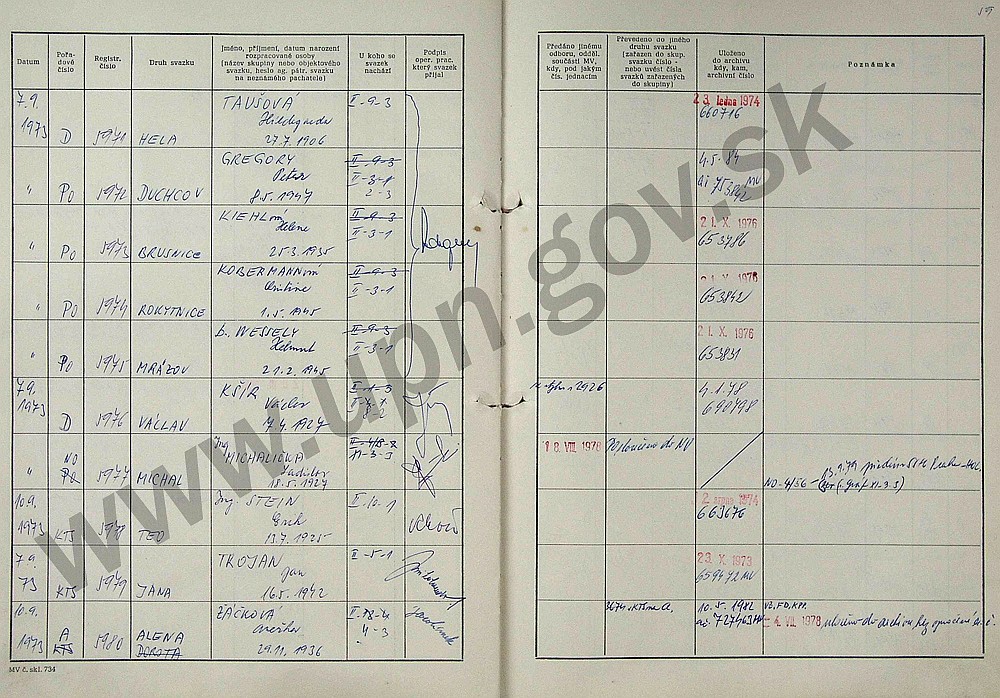 Datum
Pořa-
dové
číslo
Registr.
číslo
Druh svazku
Jméno, příjmení, datum narození
rozpracované osoby
[název skupiny nebo objektového
svazku, heslo ag. pátr. svazku
na neznámého pachatele]
U koho se
svazek
nachází
Podpis
oper. prac.
který svazek
přijal
7.9.
1973 D 5971 HELA
TAUŠOVÁ
Hildegarda
27.7.1906
II-9-3
" Po 5972 DUCHCOV
GREGORY
Peter
8.5.1947
II-9-3
II-3-1
2-3
" Po 5973 BRUSNICE
KIEHLová
Helene
25.3.1935
II-9-3
II-3-1
" Po 5974 ROKYTNICE
KOBERMANNová
1.5.1945
II-9-3
II-3-1
" Po 5975 MRÁZOV
WESSELY
Helmut
21.2.1945
II-9-3
II-3-1
7.9.
1973 D 5976 VÁCLAV
KŠÍR
Václav
7.4.1927
8-2
" NO 5977 MICHAL
Ing.
MICHALIČKA
Ladislav
18.5.1927
10.9.
1973 KTS 5978 TEO
Ing. STEJN
Erik
13.7.1925
II-10-1
7.9.
73 KTS 5979 JANA
TROJAN
Jan
16.5.1942
II-5-1
10.9.
1973 A
KTS 5980 ALENA
DOROTA
ŽÁČKOVÁ
29.11.1936
II-13-4
4-3
MV č. skl. 734
Předáno jinému
odboru, odděl.
součásti MV,
kdy, pod jakým
čís. jednacím
Převedeno do jiného
druhu svazku
[zařazen do skup.
svazku číslo -
nebo uvést čísla
svazků zařazených
do skupiny]
Uloženo
do archivu
kdy, kam,
archivní číslo
Poznámka
23. ledna 1974
660716
4.5.84
753842 MV
21. X. 1976
653786
21. X. 1976
653842
21. X. 1976
653831
4.1.78
690798
18. VIII. 1978
NO-4/56-
2. srpna 1974
663676
23. X. 1973
659472 MV
10.5.1982
727463 MV
VZ.FO.KPP.
-4. VII. 1978 uloženo do archivu bez
www.upn.gov.sk